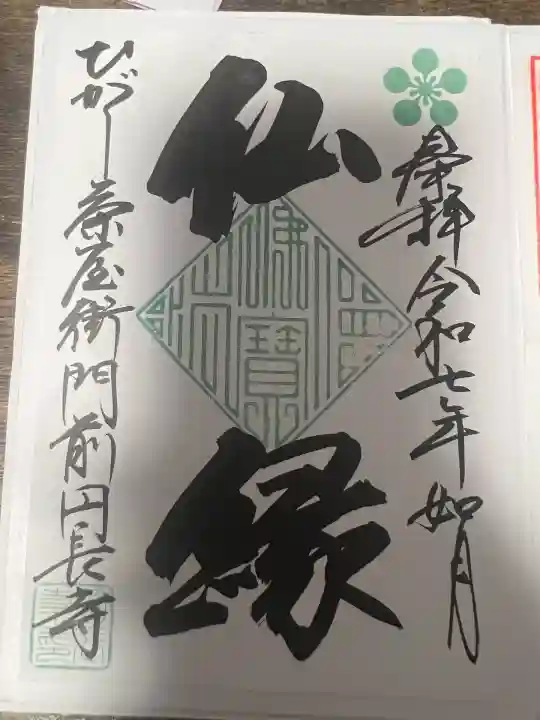 奉拝 令和七年 如月
仏縁
佛法僧寶
ひがし茶屋街門前円長寺